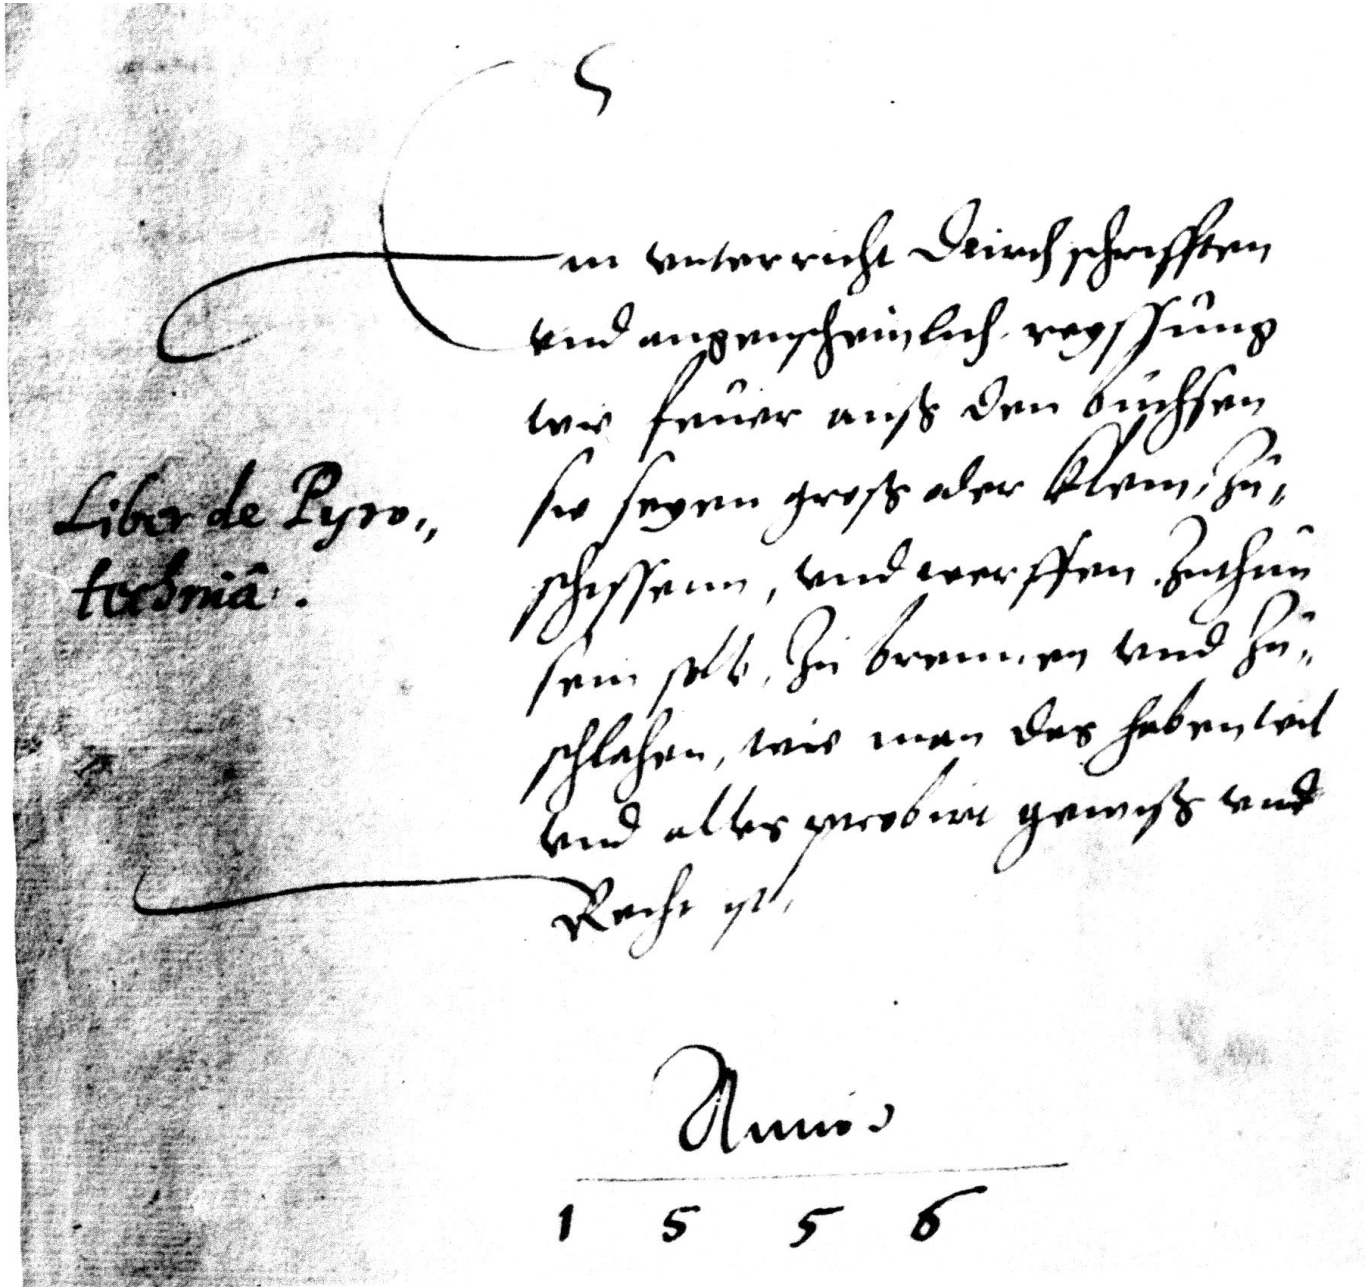 Ein vnterricht Durch schrifften
vnd augenscheinlich reyssung
wie feuer auß den buchsen
sie seyen groß oder klein, Zu„
schissenn, vnd werffen Zuthun
sein sol, Zu brennen vnd Zu„
schlahen, wie man das haben wil
vnd alles probirt gewiß vnd
Recht ist,
Liber de Pyro„
techniâ.
Anno
1 5 5 6